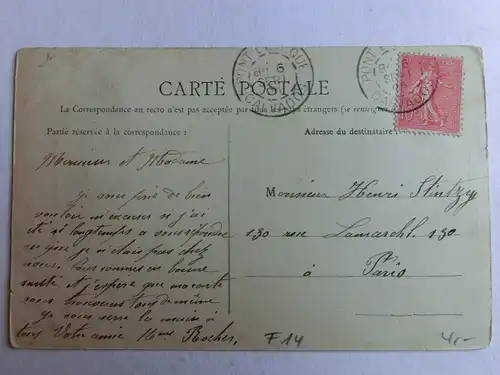 PONT L'EVEQUE
CALVADOS
CARTE POSTALE
La Correspondance au recto n'est pas acceptée par tous les pays étrangers (se renseigner
Partie réservée à la correspondance :
Adresse du destinataire :
Monsieur et Madame
je vous prie de bien
vouloir m'excuser si j'ai
été si longtemps a vous répondre
vu que je n'étais pas chez
nous. nous sommes en bonne
santé et j'espère que ma carte
vous trouverons tous de même
je vous serre la main à
tous Votre amie Mme Rocher.
Monsieur Henri Stintzy
130 rue Lamarck 130
à Paris
F14
4,-